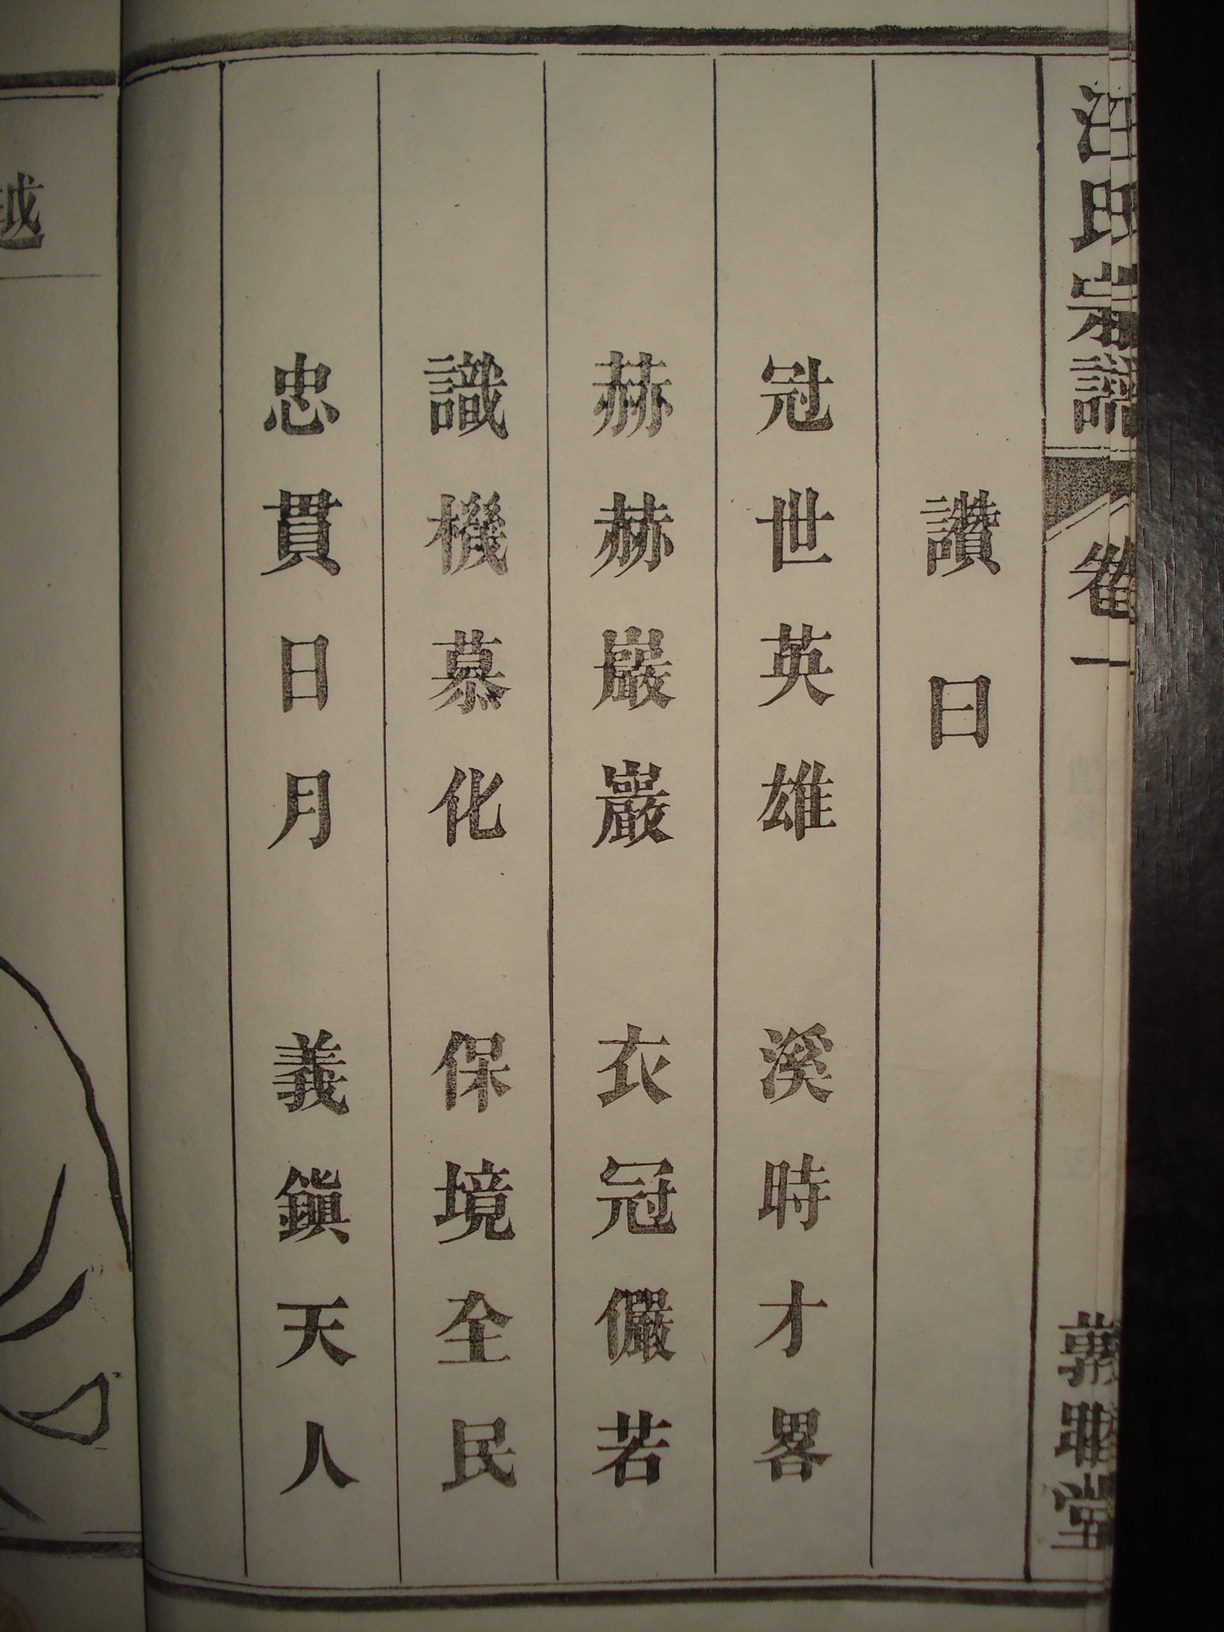 汪氏宗譜
卷一
敦睦堂
讚曰
冠世英雄 溪時才畧
赫赫巖巖 衣冠儼若
識機慕化 保境全民
忠貫日月 義鎭天人
越